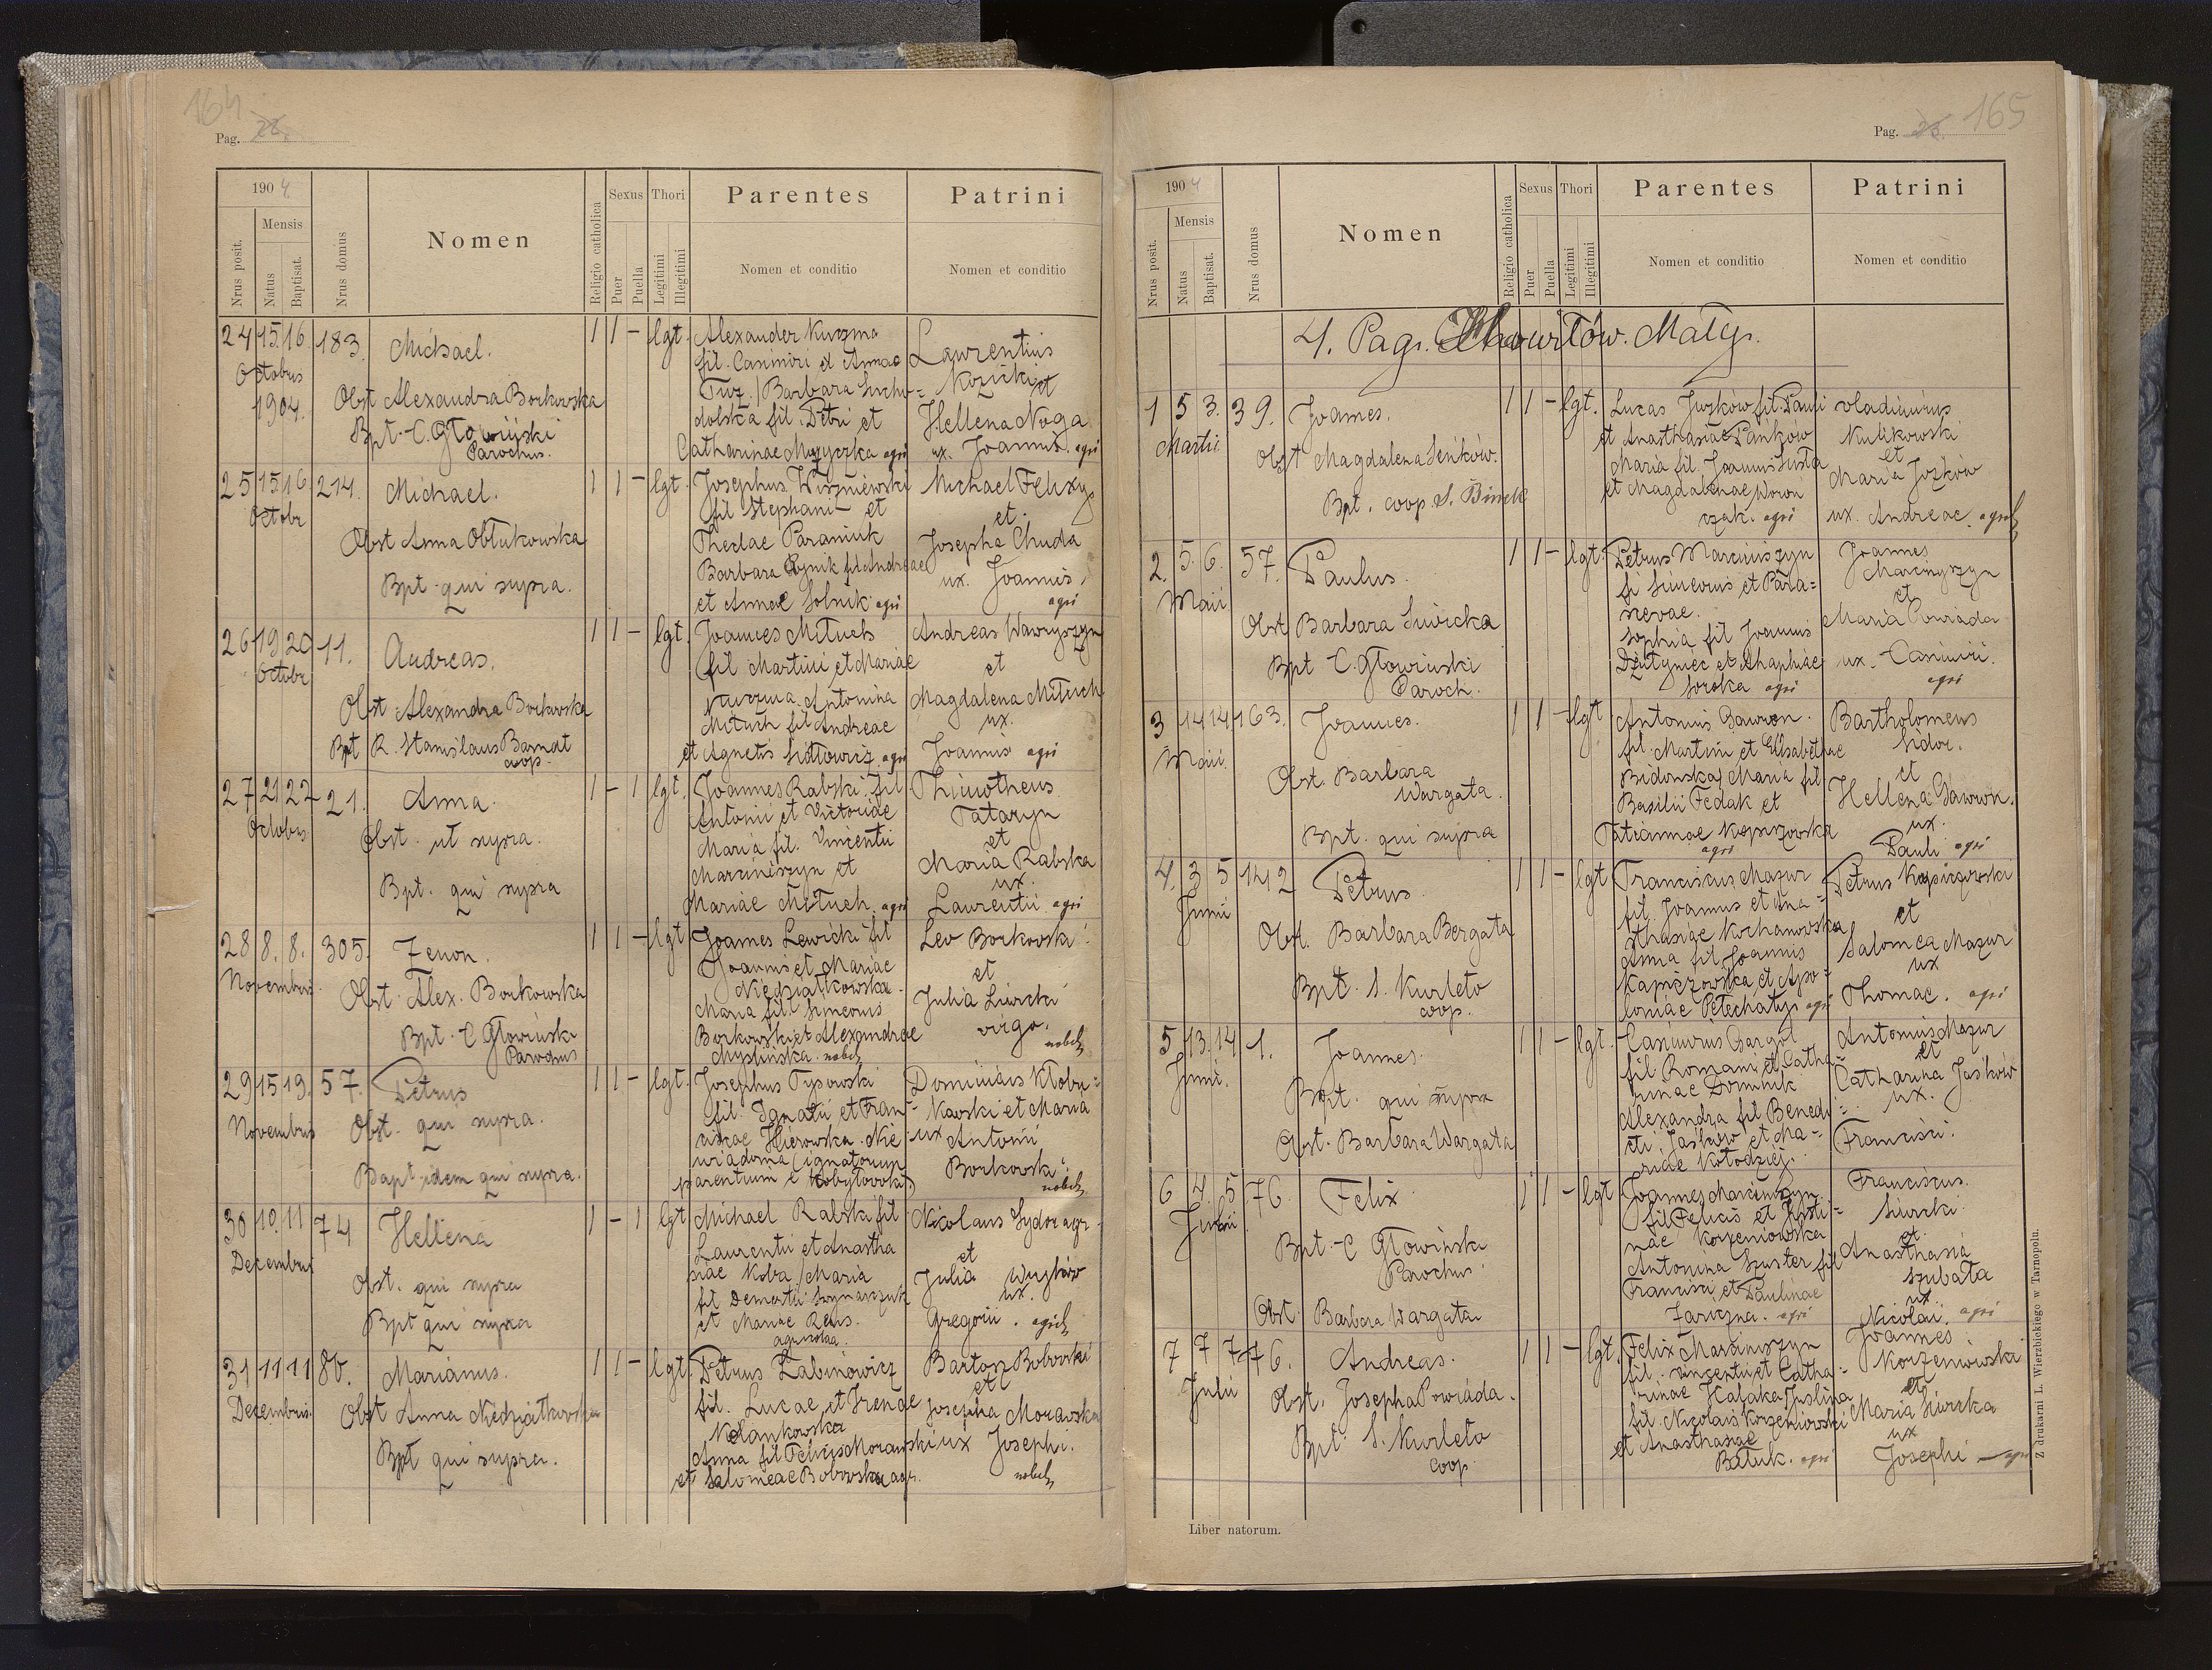 164
Pag. 22.
1904
Nrus posit.
Mensis
Natus
Baptisat.
Nrus domus
Nomen
Religio catholica
Sexus
Puer
Puella
Thori
Legitimi
Illegitimi
Parentes
Nomen et conditio
Patrini
Nomen et conditio
24 15. 16. 183. Michael. 1 1 - lgt.
Octobris
1904.
Obst Alexandra Borkowska
Bpt. C. Głowiński
Parochus.
Alexander Kuzma
fil. Casimiri et Annae
Barbara Sucho-
dolska fil. Petri et
Catharinae Muzyczka agri
Laurentius
Kozicki et
Hellena Noga
ux. Joannis. agri
25 15 16 214. Michael. 1 1 - lgt.
Octobr
Obst Anna Obtukowska
Bpt. qui supra.
Josephus Wiszniewski
fil Stephani et
Theclae Paraniuk
Barbara fil Andreae
et Annae Solnik agri
Michael Felixy
et.
Josepha Chuda
ux. Joannis,
agri
26 19 20 11. Andreas. 1 1 - lgt.
Octobr
Obst Alexandra Borkowska
Bpt R. Stanislaus Barnat
coop.
Joannes Mituch
fil Martini et Mariae
Kuczma. Antonina
Mituch fil Andreae
et Agnetis agri
Andreas Wawryszyn
et
Magdalena Mituch
ux.
Joannis agri
27 21 22 21. Anna. 1 - 1 lgt.
Octobris
Obst. ut supra.
Bpt. qui supra
Joannes Rabski fil
Antonii et Victoriae
Maria fil. Vincentii
Marciniszyn et
Mariae Mituch. agri
Thimotheus
Tataryn
et
Maria Rabska
ux.
Laurentii agri
28 8. 8. 305. Zenon. 1 1 - lgt
Novembris.
Obst. Alex. Borkowska
Bpt. C Głowiński
Parochus
Joannes Lewicki fil
Joannis et Mariae
Niedziałkowska.
Maria fil. Simeonis
Borkowski et Alexandrae
Myslinska. nobil
Leo Borkowski
et
Julia Siwicki
virgo.
nobil
29 15 19. 57. Petrus 1 1 - lgt.
Novembris
Obst. qui supra.
Bapt. idem qui supra.
Josephus Tysowski
fil. Ignatii et Fran-
ciscae Hierowska. Nie
wiadoma (ignotorum
parentum)
Dominicus Kłobu-
kowski et Maria
ux Antonii
Borkowski.
nobil
30 10. 11 74 Hellena 1 - 1 lgt
Decembris
Obst. qui supra
Bpt qui supra
Michael Rabski fil
Laurentii et Anastha
siae Koba / Maria
fil Demetrii
et Mariae Rens.
agricolae.
Nicolaus Sydor agr.
et
Julia
ux.
Gregorii. agricol
31 11 11 80. Marianus. 1 1 - lgt
Decembris.
Obst Anna Niedziałkowska
Bpt qui supra.
Petrus Zabinowicz
fil. Lucae et Irenae
Kolankowska
Anna fil Felicis Morawski
et Salomeae Bobowska agr.
Barton Bobowski
et
Josepha Morawska
ux Josephi.
nobil
165
Pag. 23.
1904
Nrus posit.
Mensis
Natus
Baptisat.
Nrus domus
Nomen
Religio catholica
Sexus
Puer
Puella
Thori
Legitimi
Illegitimi
Parentes
Nomen et conditio
Patrini
Nomen et conditio
4. Pag. Małyj.
1 5 3. 39. Joannes. 1 1 - lgt.
Martii
Obst Magdalena Seńków.
Bpt. coop. S. Binek
Lucas Juzków fil. Pauli
et Anasthasiae Pańków
Maria fil. Joannis Susta
et Magdalenae Wowii
czak. agri
Vladimirus
Kulikowski
et
Maria Jozków
ux. Andreae. agricol
2. 5. 6. 57. Paulus. 1 1 - lgt.
Maii.
Obst Barbara Siwicka
Bpt C. Głowiński
Paroch.
Petrus Marciniszyn
fi Simeonis et Para-
scevae.
Sophia fil Joannis
et Ahaphiae
Soroka agri
Joannes
Marciniszyn
et
Maria Powiada
ux. Casimiri.
agri
3 14 14 163. Joannes. 1 1 - lgt
Maii.
Obst. Barbara
Wargata.
Bpt. qui supra
Antonius Gawron.
fil. Martini et Elisabethae
Bidowska / Maria fil
Basilii Fedak et
Tatiannae Kopiczowska
agri
Bartholomeus
Sidor.
et
Hellena Gawron.
ux.
Pauli agri
4. 3 5 142 Petrus. 1 1 - lgt
Junii
Obst. Barbara Bergata
Bpt. S. Kurleto
coop.
Franciscus Mazur
fil. Joannis et Ana-
sthasiae Kochanowska
Anna fil Joannis
Kapiczowska et Apo-
loniae Petechatyj agri
Petrus Kapiczowski
et
Salomea Mazur
ux
Thomae. agri
5 13. 14 1. Joannes. 1 1 - lgt.
Junii.
Bpt. qui supra
Obst. Barbara Wargata
Casimirus Gargol
fil Romani et Catha-
rinae Dominik
Alexandra fil Benedi-
cti Jaśków et Ma-
riae Kołodziej.
Antonius Mazur
et
Catharina Jaśków
ux.
Francisci.
6 4. 5 76. Felix 1 1 - lgt
Julii
Bpt. C Głowiński
Parochus
Obst. Barbara Wargata
Joannes Marciniszyn
fil Felicis et Justi-
nae Korzeniowska
Antonina Szuster fil
Francisci et Paulinae
Zariczna. agri
Franciscus.
Siwicki.
et
Anasthasia
Szubata
ux.
Nicolai. agri
7 7 7 76. Andreas. 1 1 - lgt.
Julii
Obst. Josepha Powiada.
Bpt. S. Kurleto
coop.
Felix Marciniszyn
fil. Vincentii et Catha-
rinae
fil. Nicolais Korzeniowski
et Anasthasiae
Batuk. agri
Joannes
Korzeniowski
et
Maria Siwicka
ux
Josephi agri
Liber natorum.
Z drukarni L. Wierzbickiego w Tarnopolu.